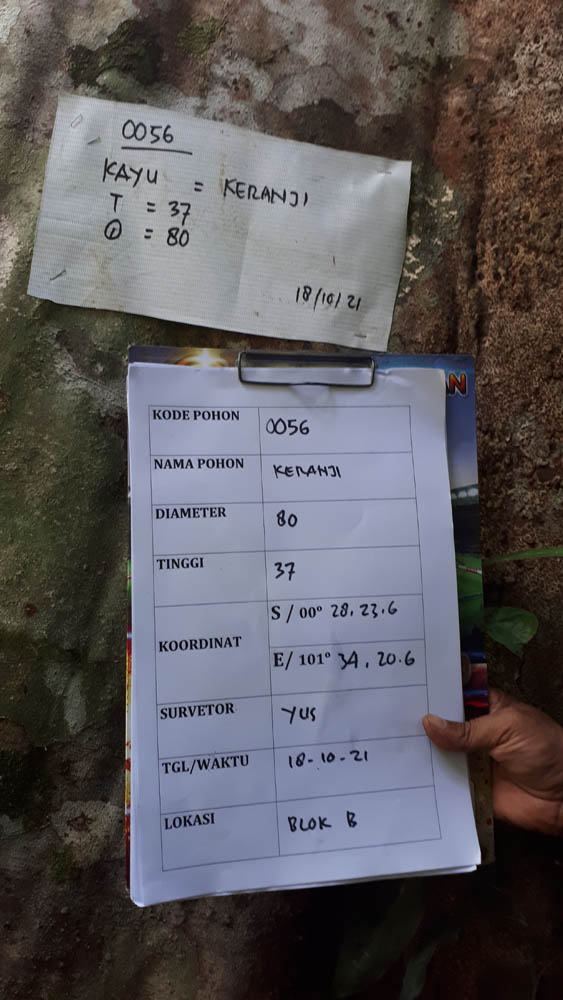 0056
KAYU = KERANJI
T = 37
= 80
18/10/21
AN
KODE POHON 0056
NAMA POHON KERANJI
DIAMETER 80
TINGGI 37
KOORDINAT S / 00° 28. 23.6
E/ 101° 34. 20.6
SURVETOR YUS
TGL/WAKTU 18-10-21
LOKASI BLOK B